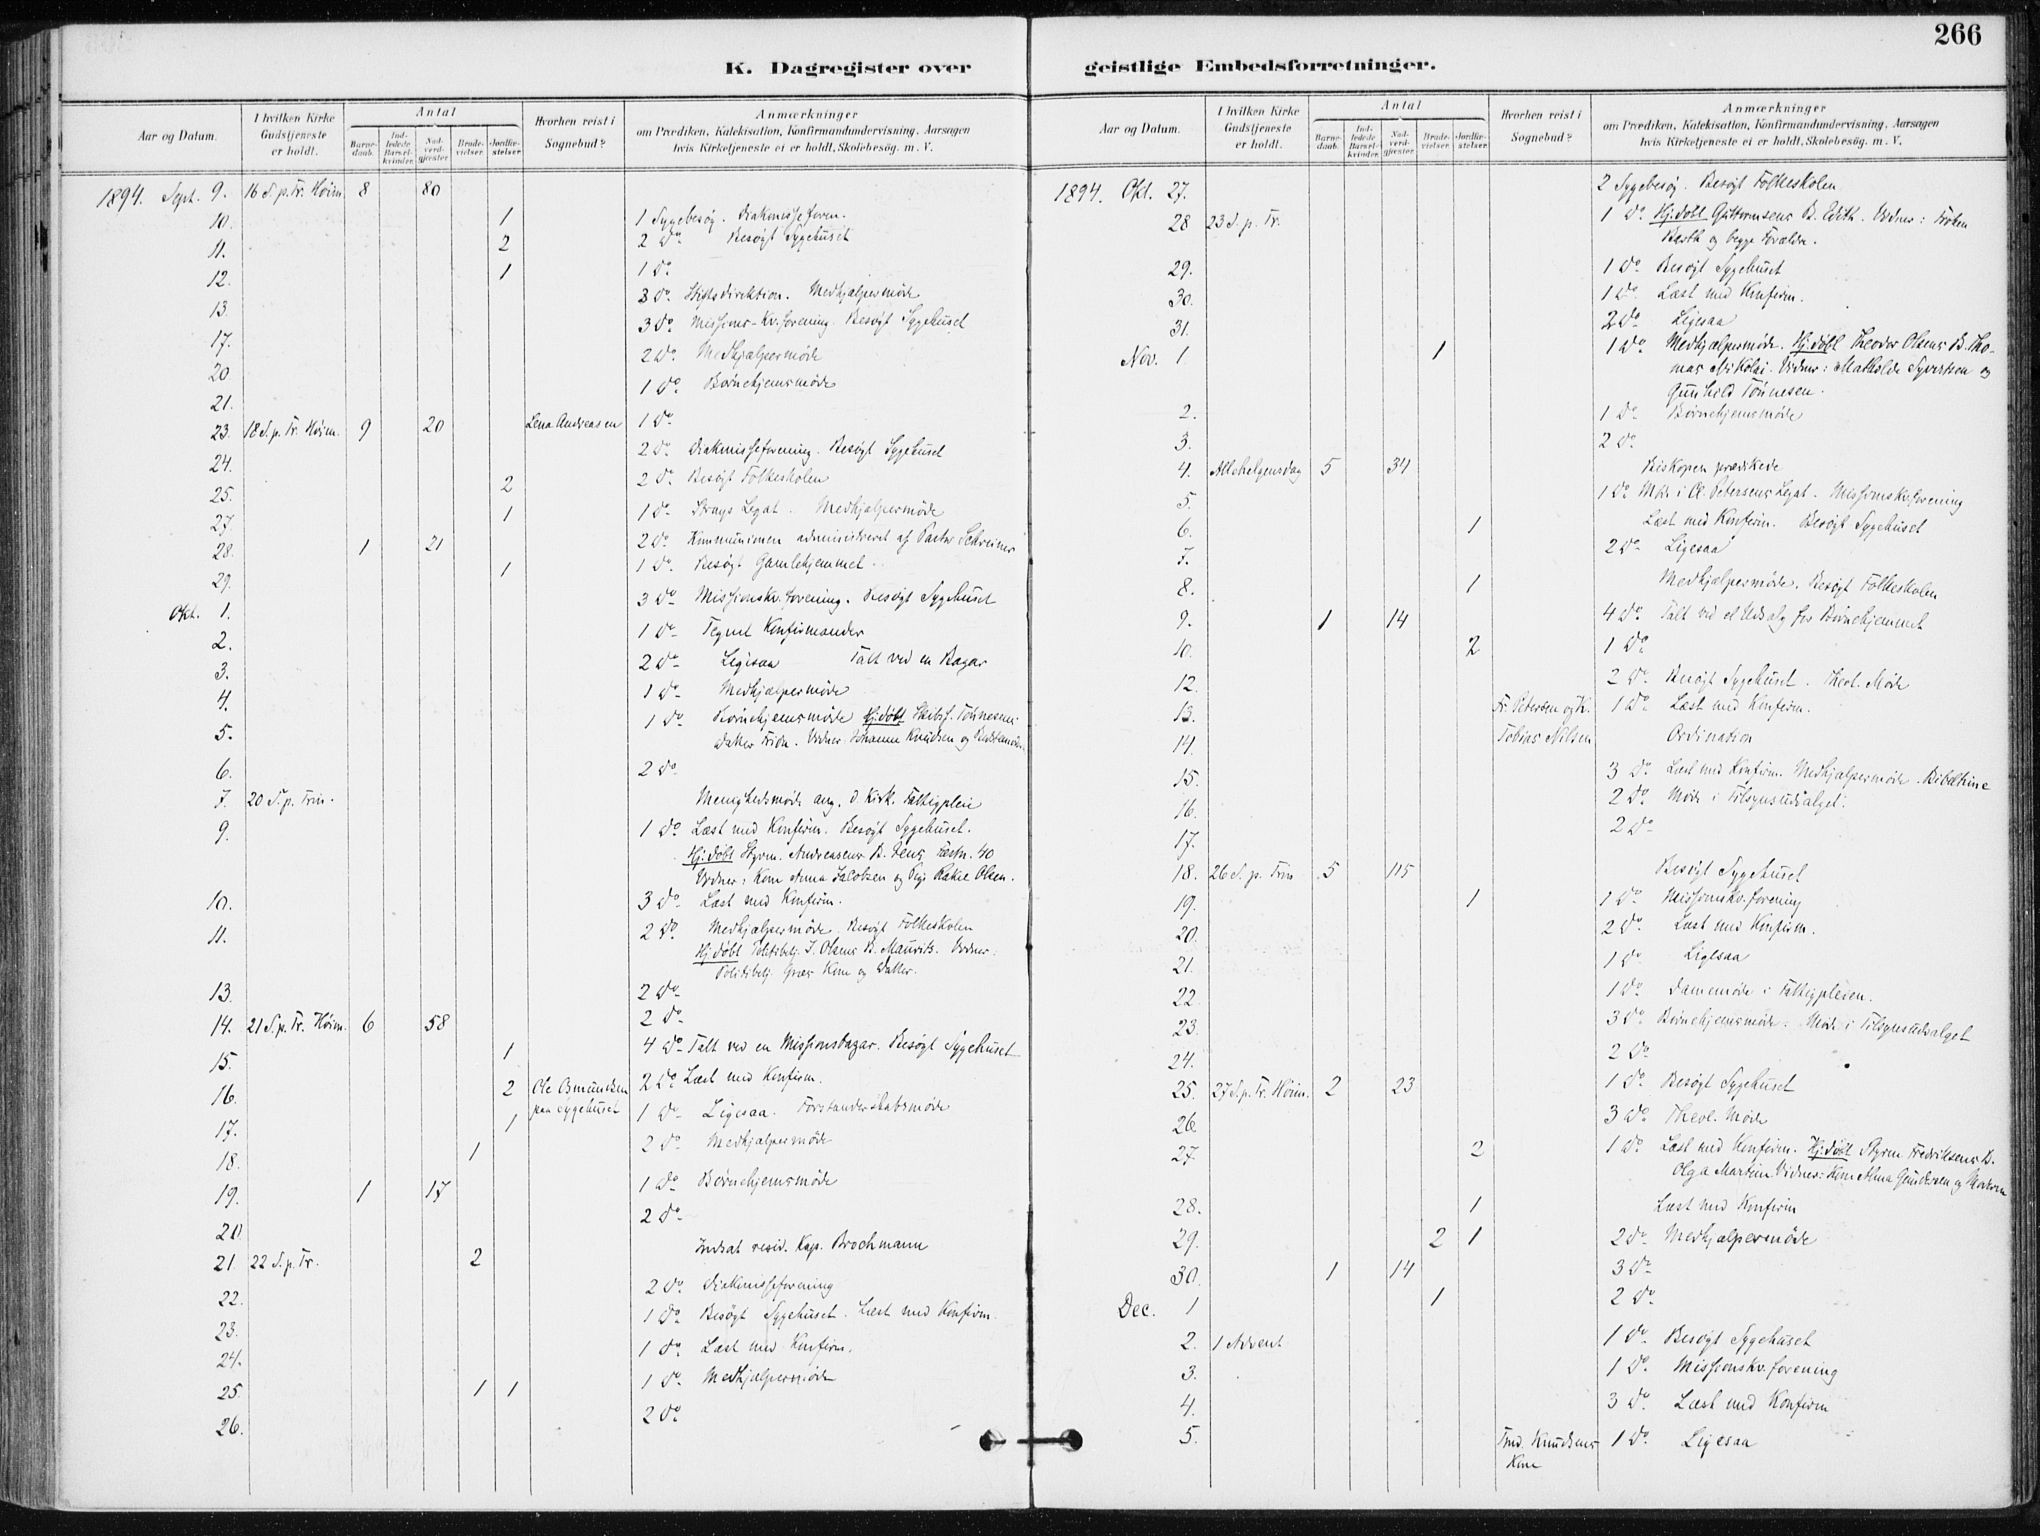 266
K. Dagregister over geistlige Embedsforretninger.
Aar og Datum. I hvilken Kirke Gudstjeneste er holdt. Antal Barnedaab. Indledede Barselkvinder. Nadverdgjester. Brudevielser. Jordfæstelser. Hvorhen reist i Sognebud? Anmærkninger om Prædiken, Katekisation, Konfirmandundervisning, Aarsagen hvis Kirketjeneste ei er holdt, Skolebesøg. m. V.
1894. Sept. 9. 16 S. p. Tr. Høim. 8 80
10. 1 1 Sygebesøg. Diakonisseforen.
11. 2 2 Do Besøgt Sygehuset
12. 1 1 Do
13. 3 Do Stiftsdirektion. Medhjælpermøde
17. 3 Do Missions-Kv.forening. Besøgt Sygehuset
20 2 Do Medhjælpermøde
21. 1 Do Børnehjemsmøde
23. 18 S. p. Tr. Høim. 9 20 Lena Andreasen 1 Do
24. 2 Do Diakonisseforening. Besøgt Sygehuset
25. 2 2 Do Besøgt Folkeskolen
27. 1 1 Do Strays Legat. Medhjælpermøde
28. 1 21 2 Do Kommunionen administreret af Pastor Schreiner
29. 1 1 Do Besøgt Gamlehjemmet.
Okt. 1. 3 Do Missionskv.forening. Besøgt Sygehuset
2. 1 Do Tegnet Konfirmander
3. 2 Do Ligesaa Talt ved en Bazar
4. 1 Do Medhjælpermøde
5. 1 Do Børnehjemsmøde Hj.døbt Skibsf. Tönnesens
Datter. Vidner. Johanne Knudsen og
6. 2 Do
7. 20 S. p. Trin. Menighedsmøde ang. d. Kirk. Fattigpleie
9. 1 Do Læst med Konfirm. Besøgt Sygehuset.
Hj.døbt Styrm. Andreasens B. Jens Festn. 40
Vidner: Kone Anna Jacobsen og Pige Rakel Olsen.
10. 3 Do Læst med Konfirm.
11. 2 Do Medhjælpermøde. Besøgt Folkeskolen
Hj.døbt Politibetj. J. Olsens B. Maurits. Vidner:
Politibetj. Kone og Datter.
13. 2 Do
14. 21 S. p. Tr. Høim. 6 58 2 Do
15. 1 4 Do Talt ved en Missionsbazar. Besøgt Sygehuset
16. 2 Ole Osmundsen paa Sygehuset 2 Do Læst med Konfirm.
17. 1 1 Do Ligesaa. Forstanderskabsmøde
18. 1 2 Do Medhjælpermøde
19. 1 17 1 Do Børnehjemsmøde
20 2 Do
21. 22 S. p. Tr. 2 Indsat resid. Kap. Brochmann
22. 2 Do Diakonisseforening
23. 1 Do Besøgt Sygehuset. Læst med Konfirm.
24. 1 Do Læst med Konfirm.
25. 1 1 1 Do Medhjælpermøde
26. 2 Do
Aar og Datum. I hvilken Kirke Gudstjeneste er holdt. Antal Barnedaab. Indledede Barselkvinder. Nadverdgjester. Brudevielser. Jordfæstelser. Hvorhen reist i Sognebud? Anmærkninger om Prædiken, Katekisation, Konfirmandundervisning, Aarsagen hvis Kirketjeneste ei er holdt, Skolebesøg. m. V.
1894. Okt. 27. 2 Sygebesøg. Besøgt Folkeskolen
28 23 S. p. Tr. 1 Do Hj.døbt Guttormsens B. Edith. Vidner: Frøken
Barth og begge Forældre.
29. 1 Do Besøgt Sygehuset
30. 1 Do Læst med Konfirm.
31. 2 Do Ligesaa
Nov. 1 1 1 Do Medhjælpermøde. Hj.døbt Theodor Olsens B. Tho-
mas Nikolai. Vidner: Mathilde Syvertsen og
Gunhild Tönnesen.
2. 1 Do Børnehjemsmøde
3. 2 Do
4. Allehelgensdag 5 34 Biskopen prædikede
5. 1 Do Møde i Cl. Petersens Legat. Missionskv.forening
6. 1 Læst med Konfirm. Besøgt Sygehuset
7. 2 Do Ligesaa
8. 1 Medhjælpermøde. Besøgt Folkeskolen
9. 1 14 4 Do Talt ved et Udsalg for Børnehjemmet
10. 2 1 Do
12. 2 Do Besøgt Sygehuset. Theol. Møde
13. Fr. Petersen og K. 1 Do Læst med Konfirm.
14. Tobias Nilsen Ordination
15. 3 Do Læst med Konfirm. Medhjælpermøde. Bibeltime
16. 2 Do Møde i Tilsynsudvalget.
17. 2 Do
18. 26 S. p. Trin 5 115 Besøgt Sygehuset
19. 1 1 Do Missionskv.forening
20. 2 Do Læst med Konfirm.
21. 1 Do Ligesaa
22. 1 Do Damemøde i Fattigpleien.
23. 3 Do Børnehjemsmøde. Møde i Tilsynsudvalget
24. 2 Do
25. 27 S. p. Tr. Høim. 2 23 1 Do Besøgt Sygehuset
26 3 Do Theol. Møde
27. 2 1 Do Læst med Konfirm. Hj.døbt Styrm Fredriksens B.
Olga Martine. Vidner: Kone Anna Gundersen og Moderen
28. 1 Læst med Konfirm
29. 2 1 2 Do Medhjælpermøde
30. 1 14 3 Do
Dec. 1 1 2 Do
2. 1 Advent 1 Do Besøgt Sygehuset
3. 1 Do Missionskv.forening
4. 3 Do Læst med Konfirm
5. Knudsens Kone 1 Do Ligesaa